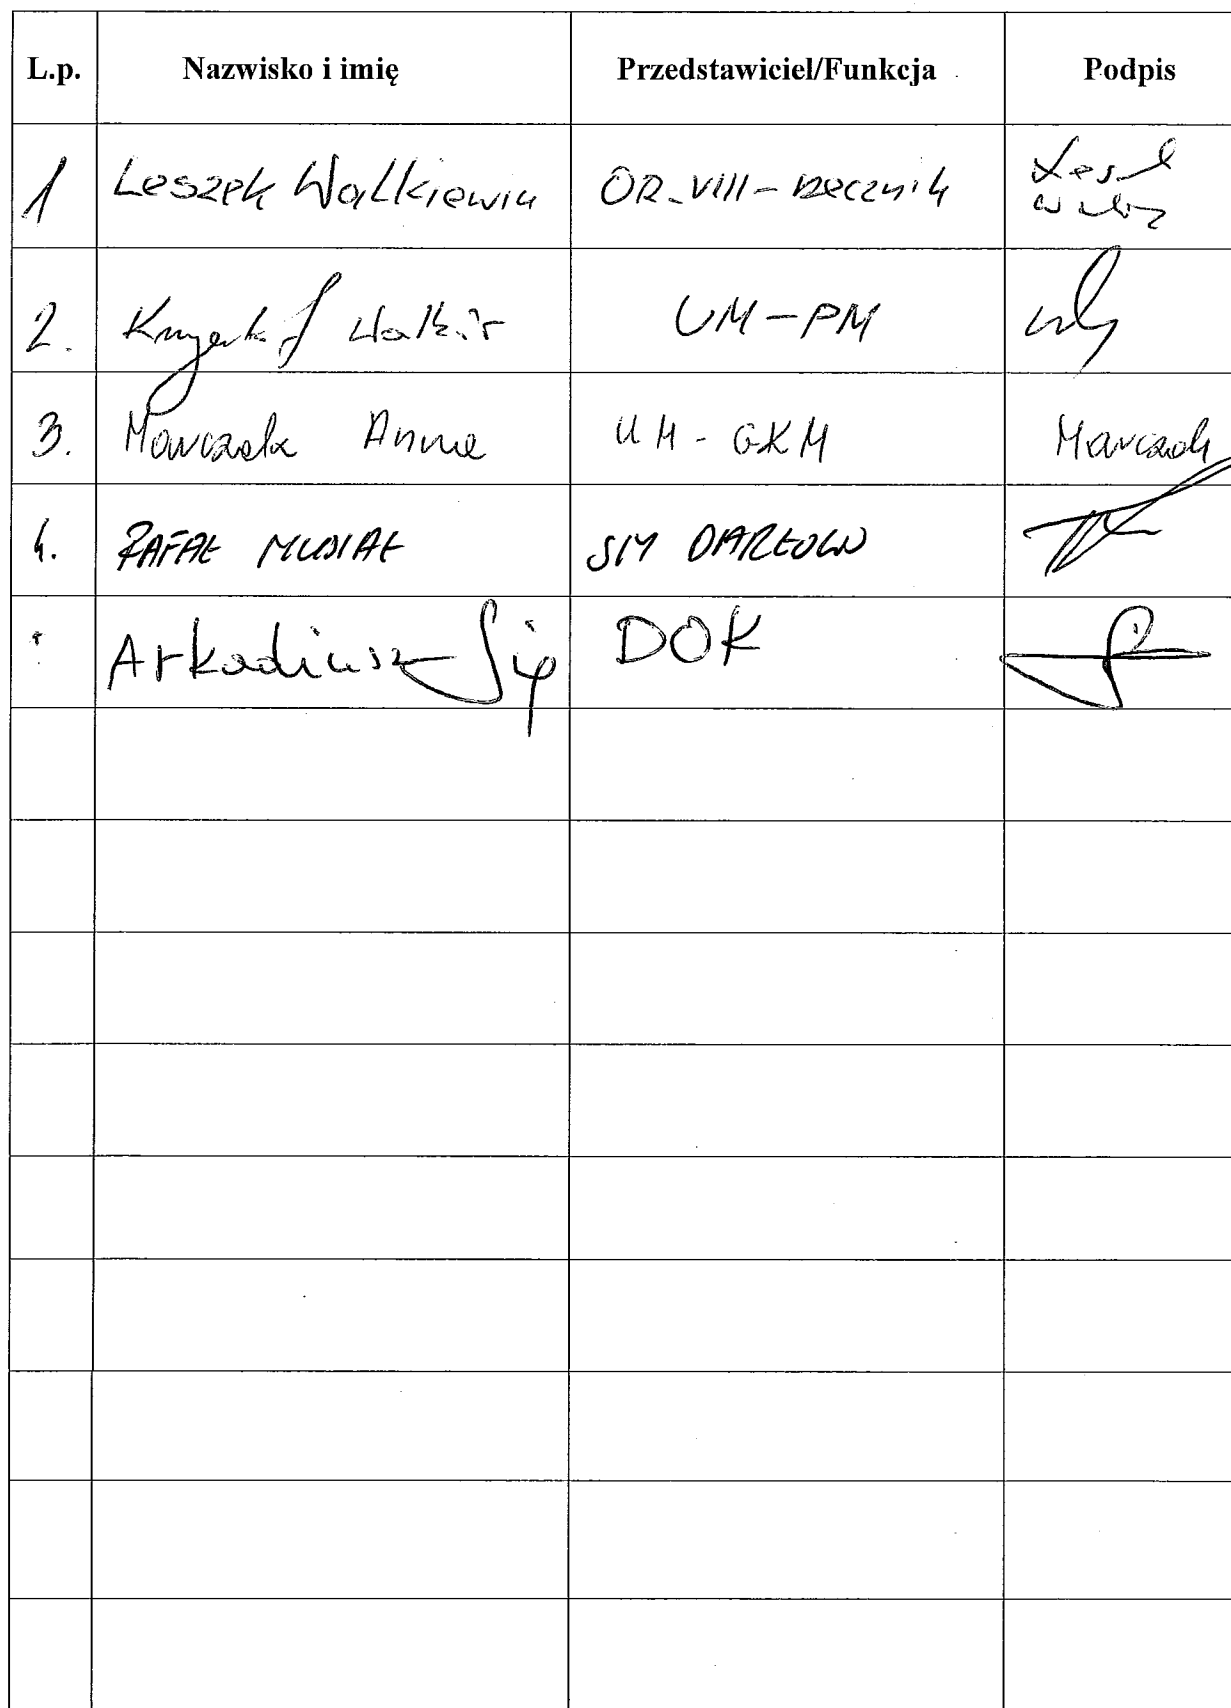 L.p. Nazwisko i imię Przedstawiciel/Funkcja Podpis
1 Leszek Walkiewicz OR-VIII-rzecznik
2. UM-PM
3. Marczak Anna UM-GKM Marczak
4. RAFAŁ MUSIAŁ SM DARŁOWO
Arkadiusz Sip DOK